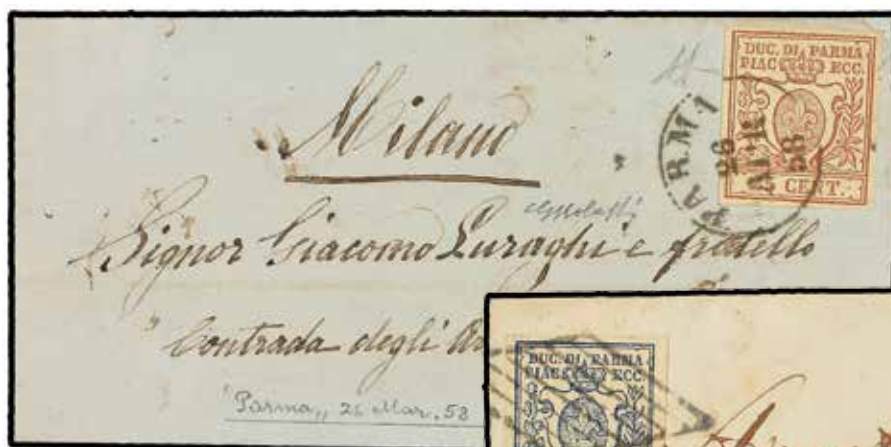 Milano
DUC. DI PARMA
PIAC ECC.
PARMA
26
APR
58
25 CENT.
Signor Giacomo Luraghi e fratello
Contrada degli
Parma,, 26 Mar. 58
DUC. DI PARMA
PIAC ECC.